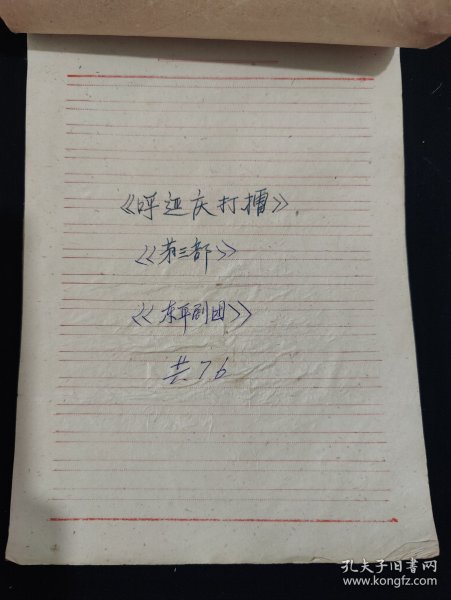 《呼延庆打擂》
《第三部》
《东平剧团》
共76
孔夫子旧书网
www.kongfz.com